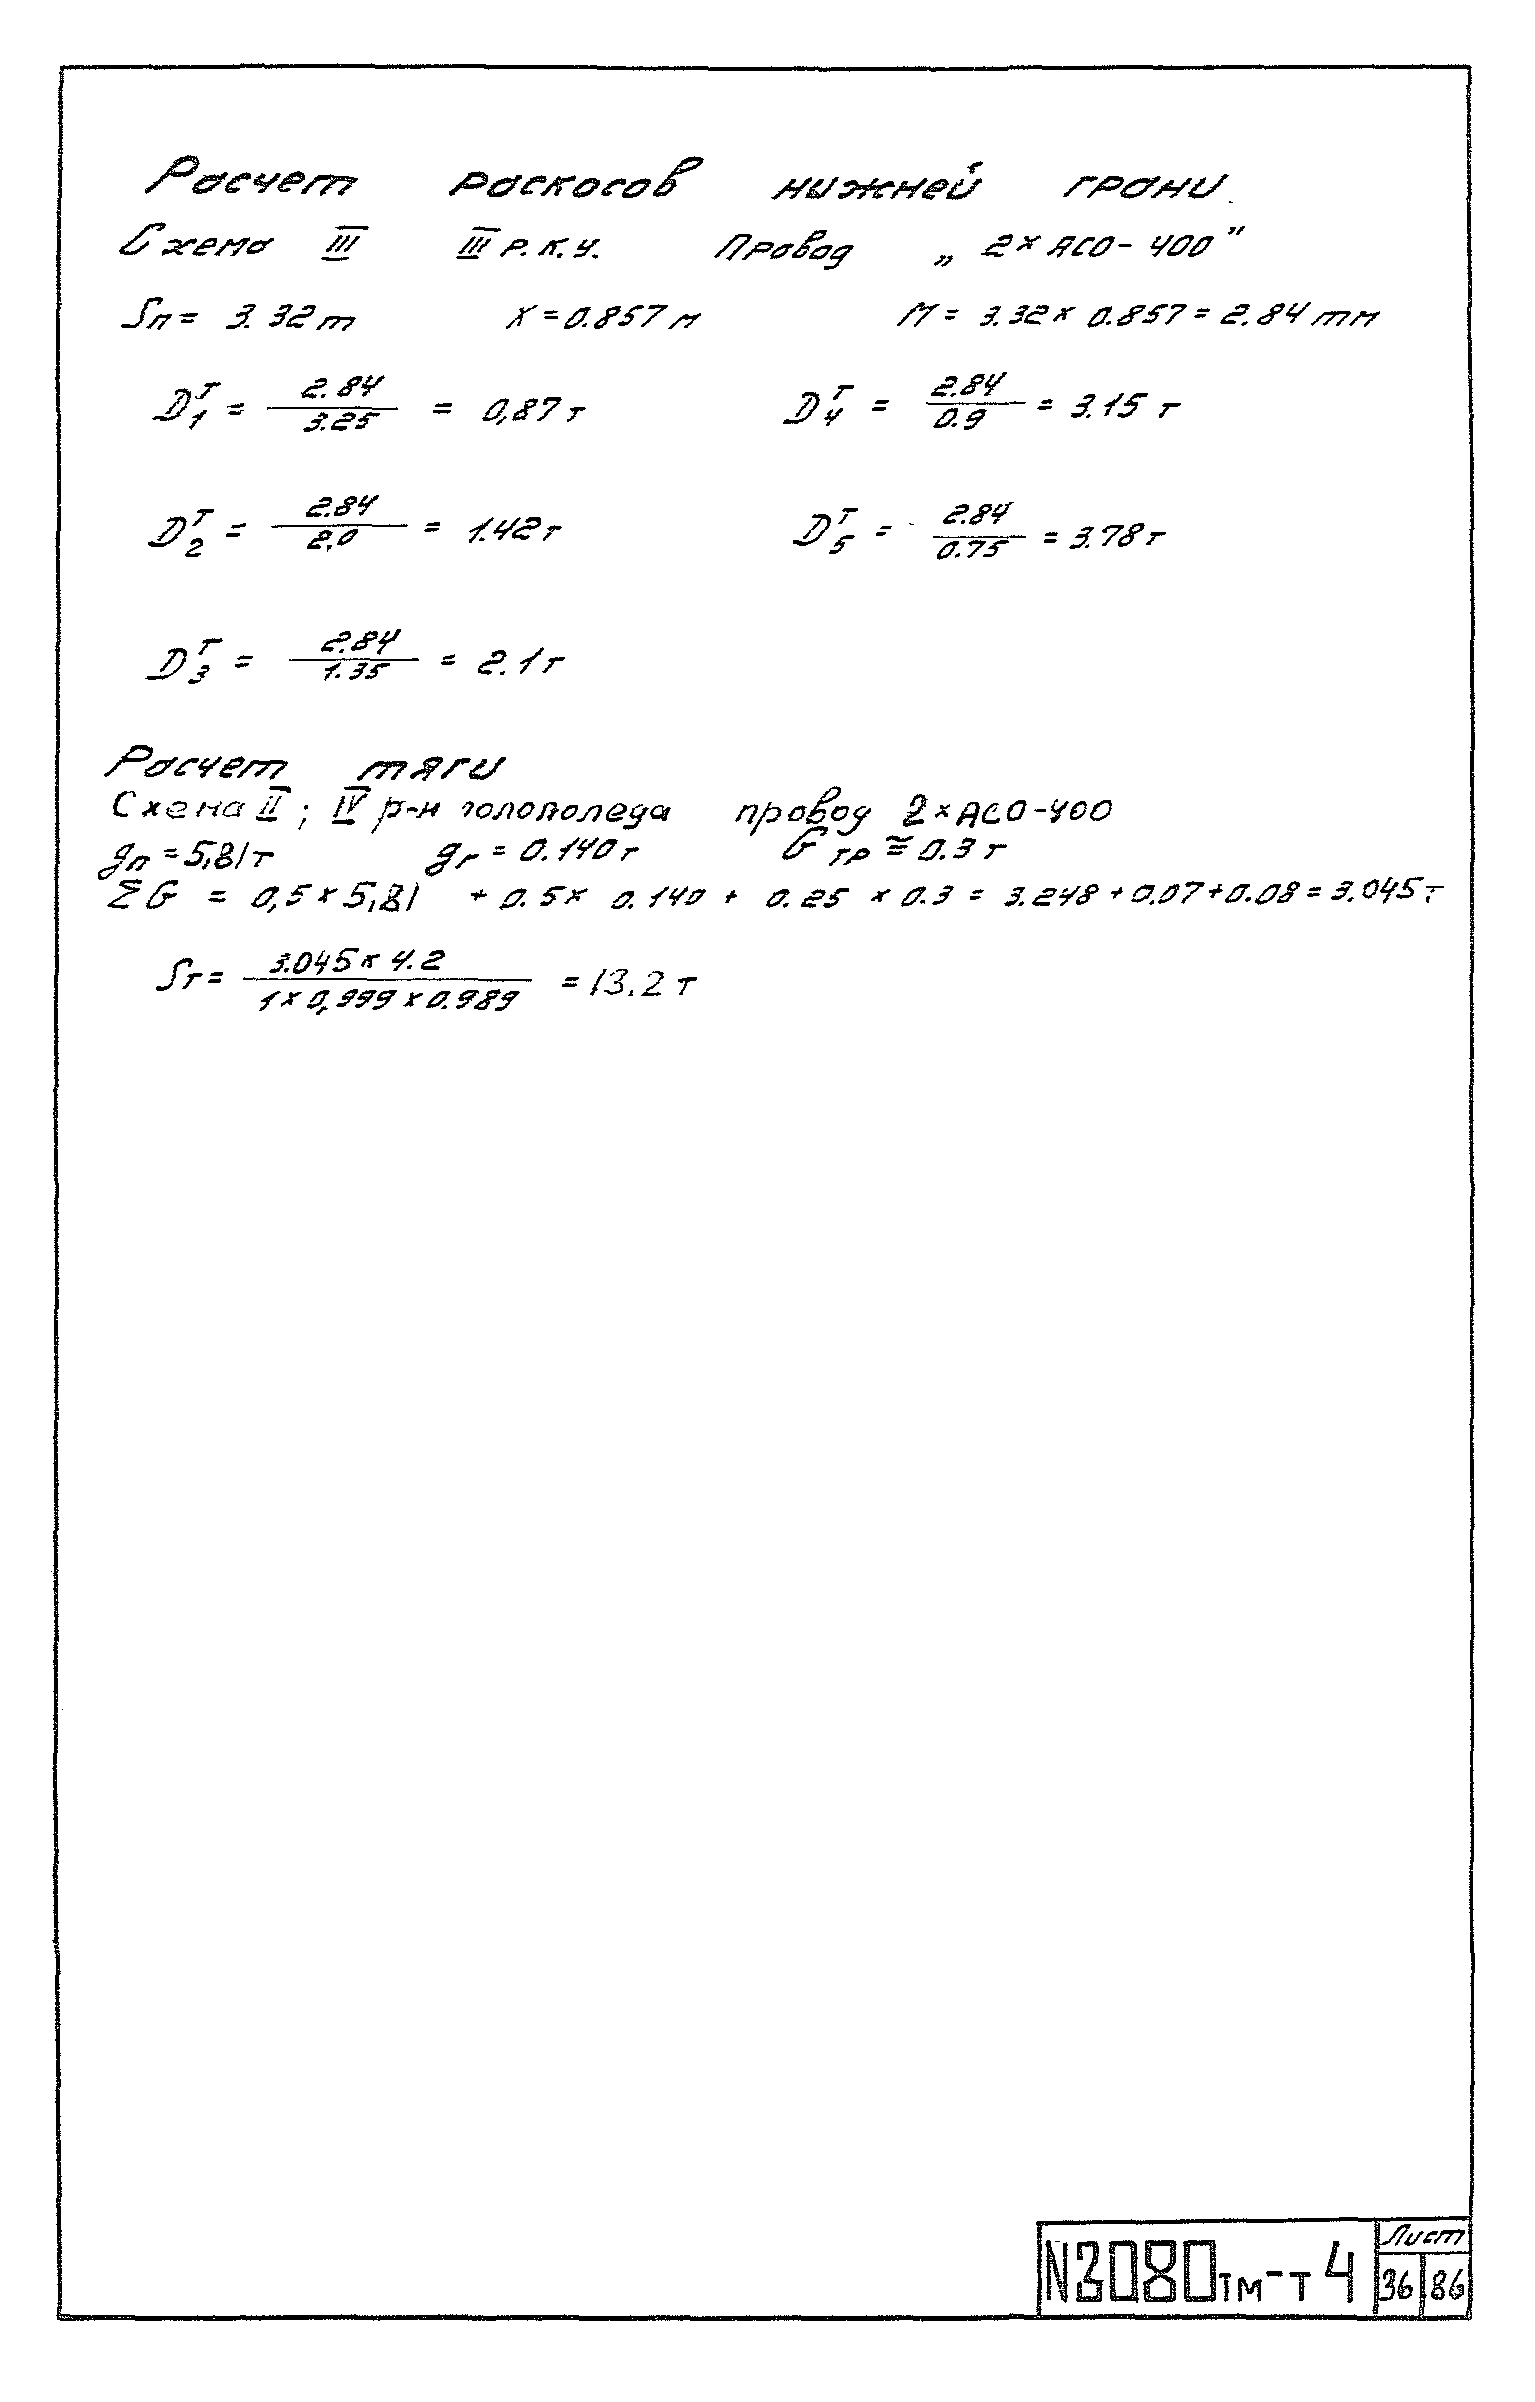 Расчет раскосов нижней грани
Схема III III р.к.у. Провод „2×АСО-400"
Sп = 3.32т X = 0.857м М = 3.32 × 0.857 = 2.84 тм
D₁ᵀ = 2.84 / 3.25 = 0,87т D₄ᵀ = 2.84 / 0.9 = 3.15 т
D₂ᵀ = 2.84 / 2,0 = 1.42т D₅ᵀ = 2.84 / 0.75 = 3.78т
D₃ᵀ = 2.84 / 1.35 = 2.1т
Расчет тяги
Схема II; IV р-н голололеда провод 2×АСО-400
gп = 5,81т gг = 0.140т Gтр ≅ 0.3 т
ΣG = 0,5 × 5,81 + 0.5 × 0.140 + 0.25 × 0.3 = 3.248 + 0.07 + 0.08 = 3.045т
Sт = 3.045 × 4.2 / 1 × 0,999 × 0.989 = 13.2 т
N3080тм-т4
Лист
36 86